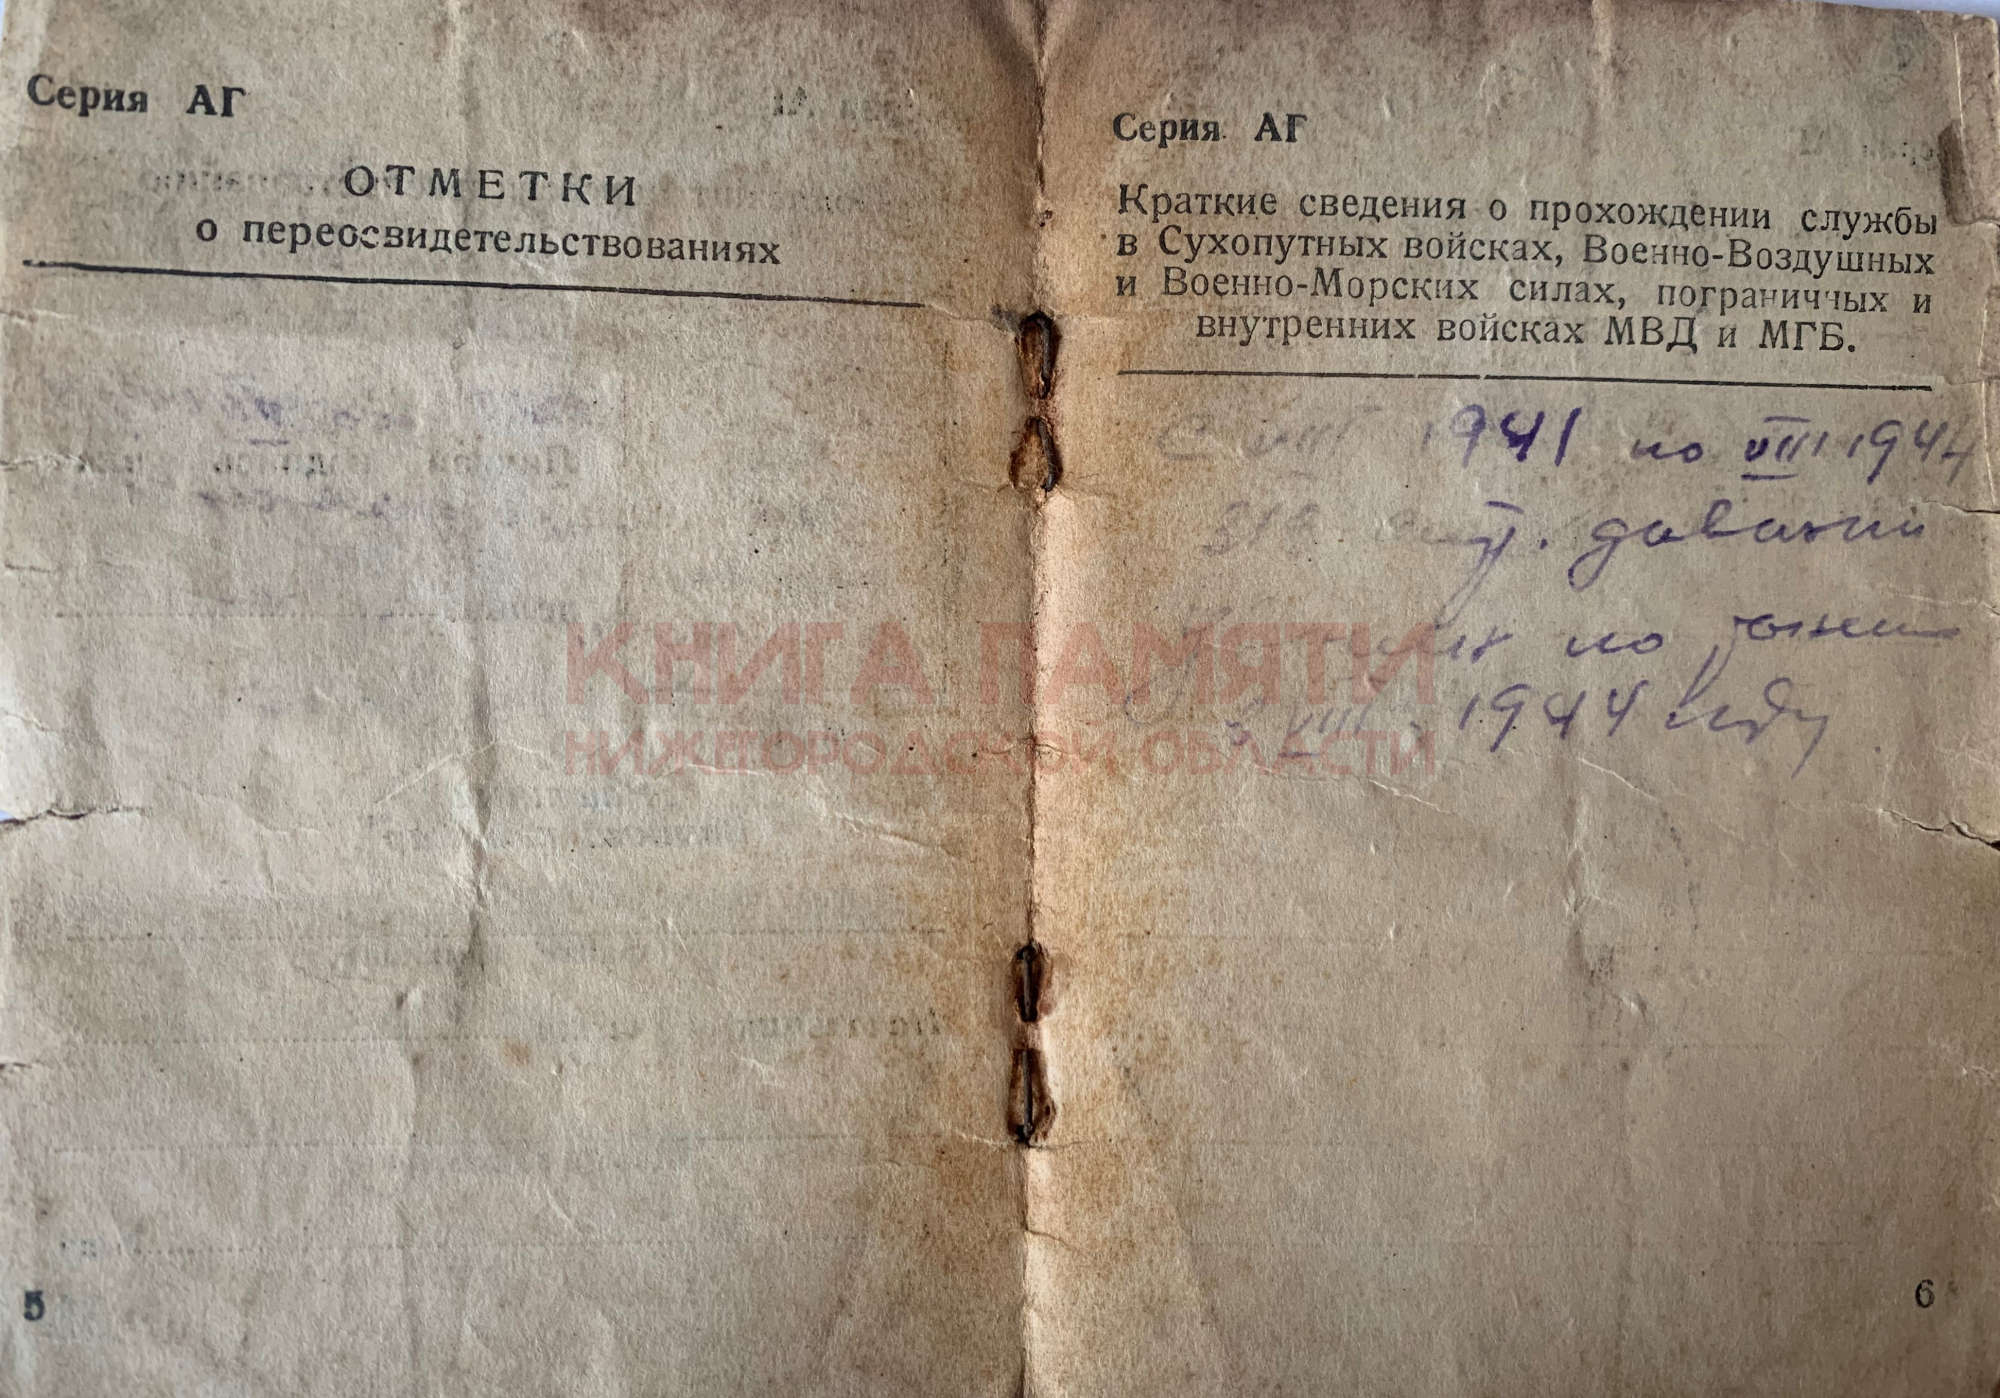 Серия АГ
ОТМЕТКИ
о переосвидетельствованиях
5
Серия АГ
Краткие сведения о прохождении службы
в Сухопутных войсках, Военно-Воздушных
и Военно-Морских силах, пограничных и
внутренних войсках МВД и МГБ.
С VIII 1941 по VIII 1944
дивизии
по
VIII. 1944 году
6
КНИГА ПАМЯТИ
НИЖЕГОРОДСКОЙ ОБЛАСТИ